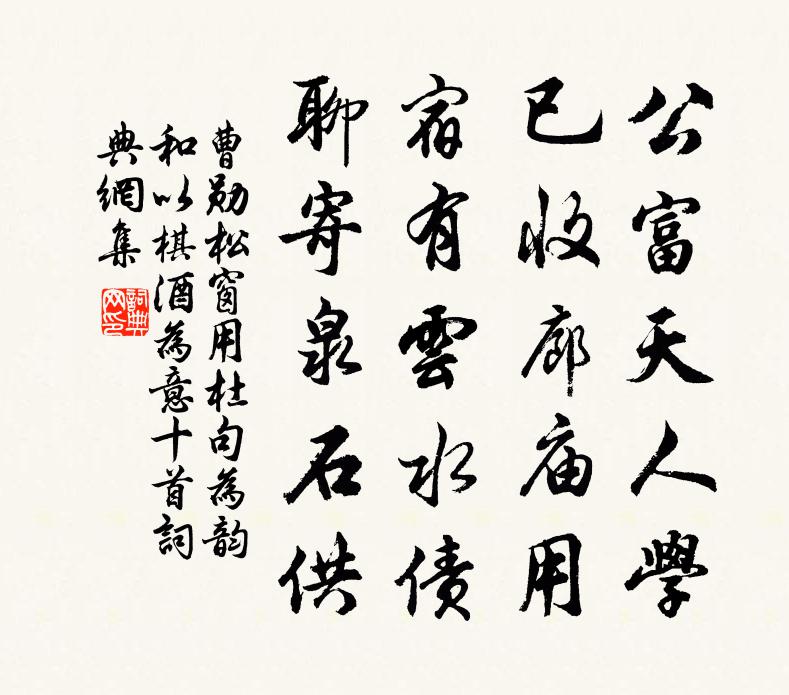 公富天人學
已收廊庙用
宿有雲水債
聊寄泉石供
曹勋松窗用杜句為韵
和以棋酒為意十首詞
典網集
詞典網印